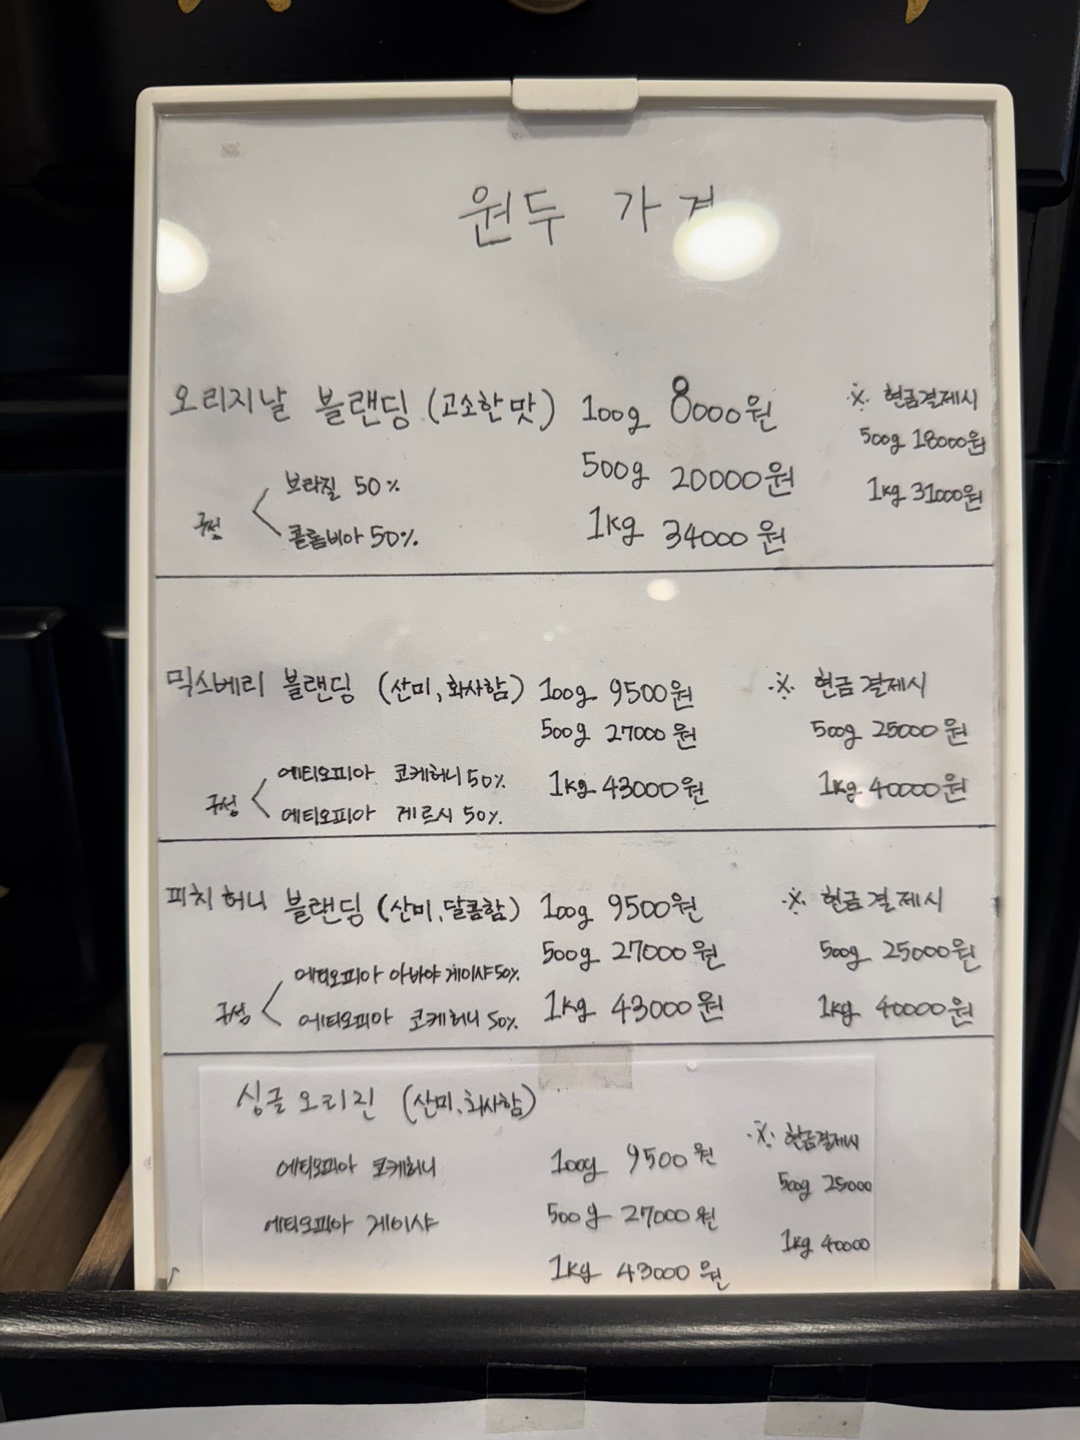 원두 가격
오리지날 블랜딩 (고소한 맛) 100g 8000원 ※ 현금결제시
500g 20000원 500g 18000원
구성 < 보라질 50%
콜롬비아 50%
1kg 34000원 1kg 31000원
믹스베리 블랜딩 (산미, 화사함) 100g 9500원 ※ 현금결제시
500g 27000원 500g 25000원
구성 < 에티오피아 코케허니 50%
에티오피아 게르시 50%
1kg 43000원 1kg 40000원
피치허니 블랜딩 (산미, 달콤함) 100g 9500원 ※ 현금결제시
500g 27000원 500g 25000원
구성 < 에티오피아 아바야 게이샤 50%
에티오피아 코케허니 50%
1kg 43000원 1kg 40000원
싱글 오리진 (산미, 화사함) ※ 현금결제시
에티오피아 코케허니 100g 9500원 500g 25000
에티오피아 게이샤 500g 27000원 1kg 40000
1kg 43000원